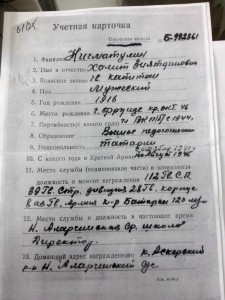 Учетная карточка
Орденская книжка № Б-992361
1. Фамилия Нигматулин
2. Имя и отчество Халит
3. Воинское звание гв. капитан
4. Пол Мужской
5. Год рождения 1916
6. Место рождения г. Фрунзе
7. Партийность с 1944
8. Образование Высшее педагогическое
9. Национальность татарин
10. С какого года в Красной Армии
11. Место службы (наименование части) и занимаемая
должность в момент награждения 112 гв. С.П.
39 гв. Стр. дивизия 28 гв. корпус
8 гв. Армия к-р батареи 120 м/м
12. Место службы и должность в настоящее время
Н. Аларчинская Ср. школа
Директор.
13. Домашний адрес награжденного к. Аскерский
р-н Н. Аларчинский